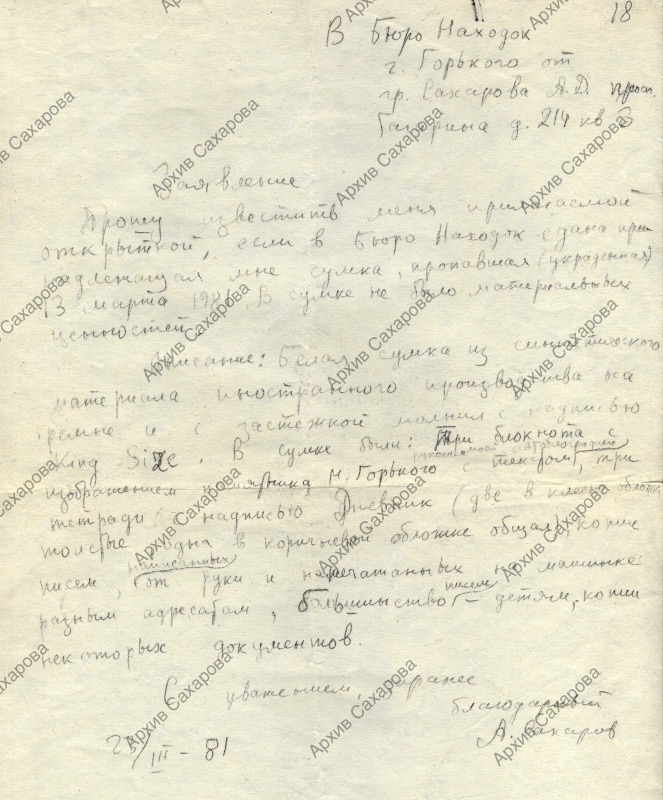 18
В Бюро Находок
г. Горького от
гр. Сахарова А.Д. просп.
Гагарина д. 214 кв 3
Заявление
Прошу известить меня прилагаемой
открыткой, если в Бюро Находок сдана при-
надлежащая мне сумка, пропавшая (украденная)
13 марта 1981. В сумке не было материальных
ценностей.
Описание: Белая сумка из синтетического
материала иностранного производства на
ремне и с застежкой молния с надписью
King Size. В сумке были: Три блокнота с
рукописью моей автобиографии
изображением памятника М. Горького с текстом, три
тетради с надписью Дневник (две в клеенч. обложке
толстые одна в коричневой обложке общая), копии
написанных
писем, от руки и напечатаных на машинке
писем
разным адресатам, большинство – детям, копии
некоторых документов.
С уважением, заранее
благодарный
А. Сахаров
25/III – 81
Архив Сахарова